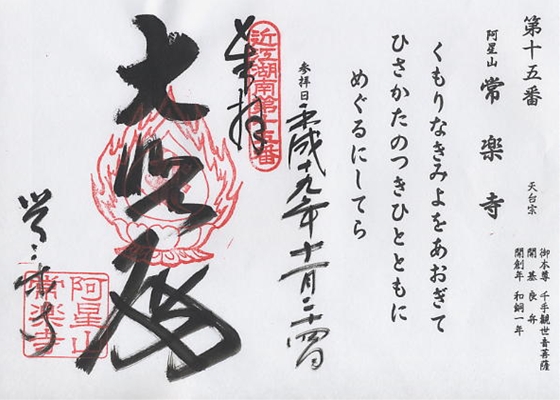 第十五番
阿星山 常楽寺 天台宗
御本尊 千手観世音菩薩
開基 良弁
開創年 和銅一年
くもりなきみよをあおぎて
ひさかたのつきひとともに
めぐるにしてら
参拝日 平成十九年十一月二十四日
近江湖南第十五番
奉拝
大悲殿
常楽寺
阿星山
常楽寺